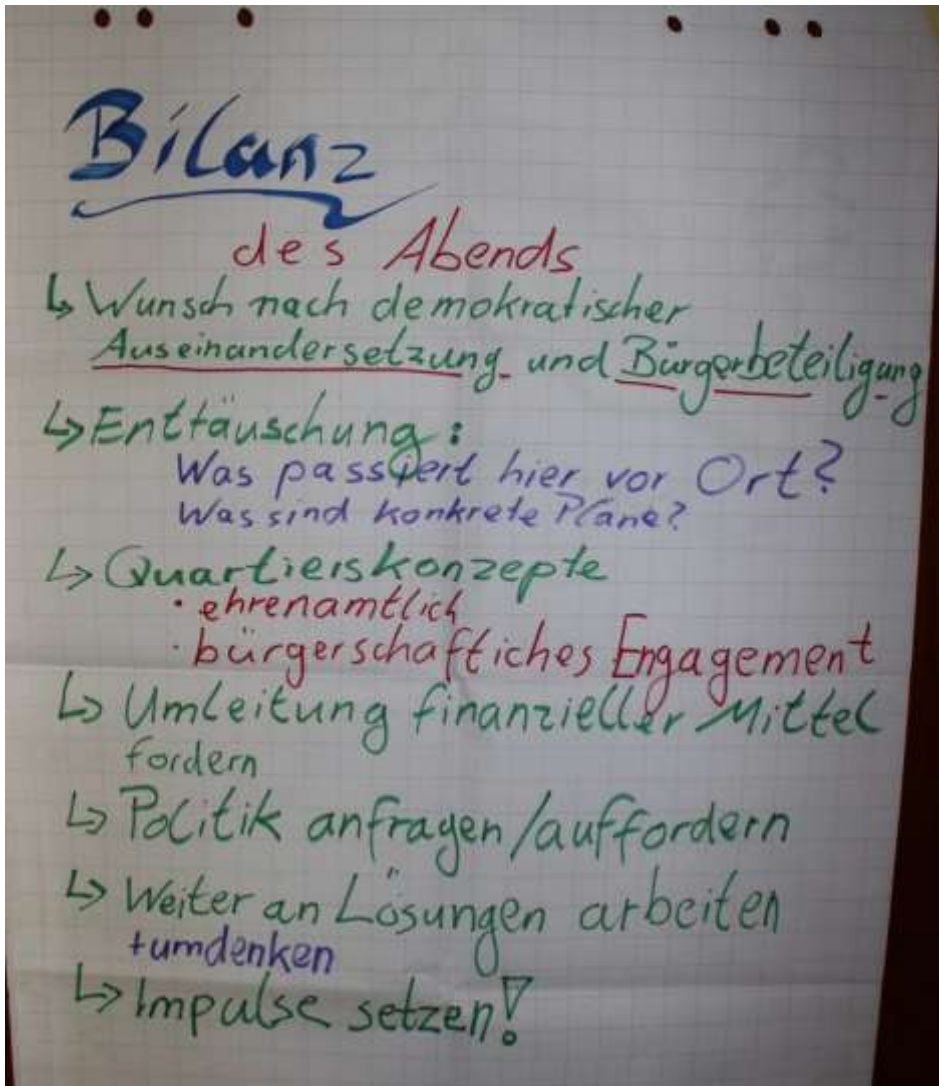 Bilanz
des Abends
↳ Wunsch nach demokratischer
Auseinandersetzung und Bürgerbeteiligung
↳ Enttäuschung:
Was passiert hier vor Ort?
Was sind konkrete Pläne?
↳ Quartierskonzepte
· ehrenamtlich
· bürgerschaftliches Engagement
↳ Umleitung finanzieller Mittel
fordern
↳ Politik anfragen/auffordern
↳ Weiter an Lösungen arbeiten
+umdenken
↳ Impulse setzen!